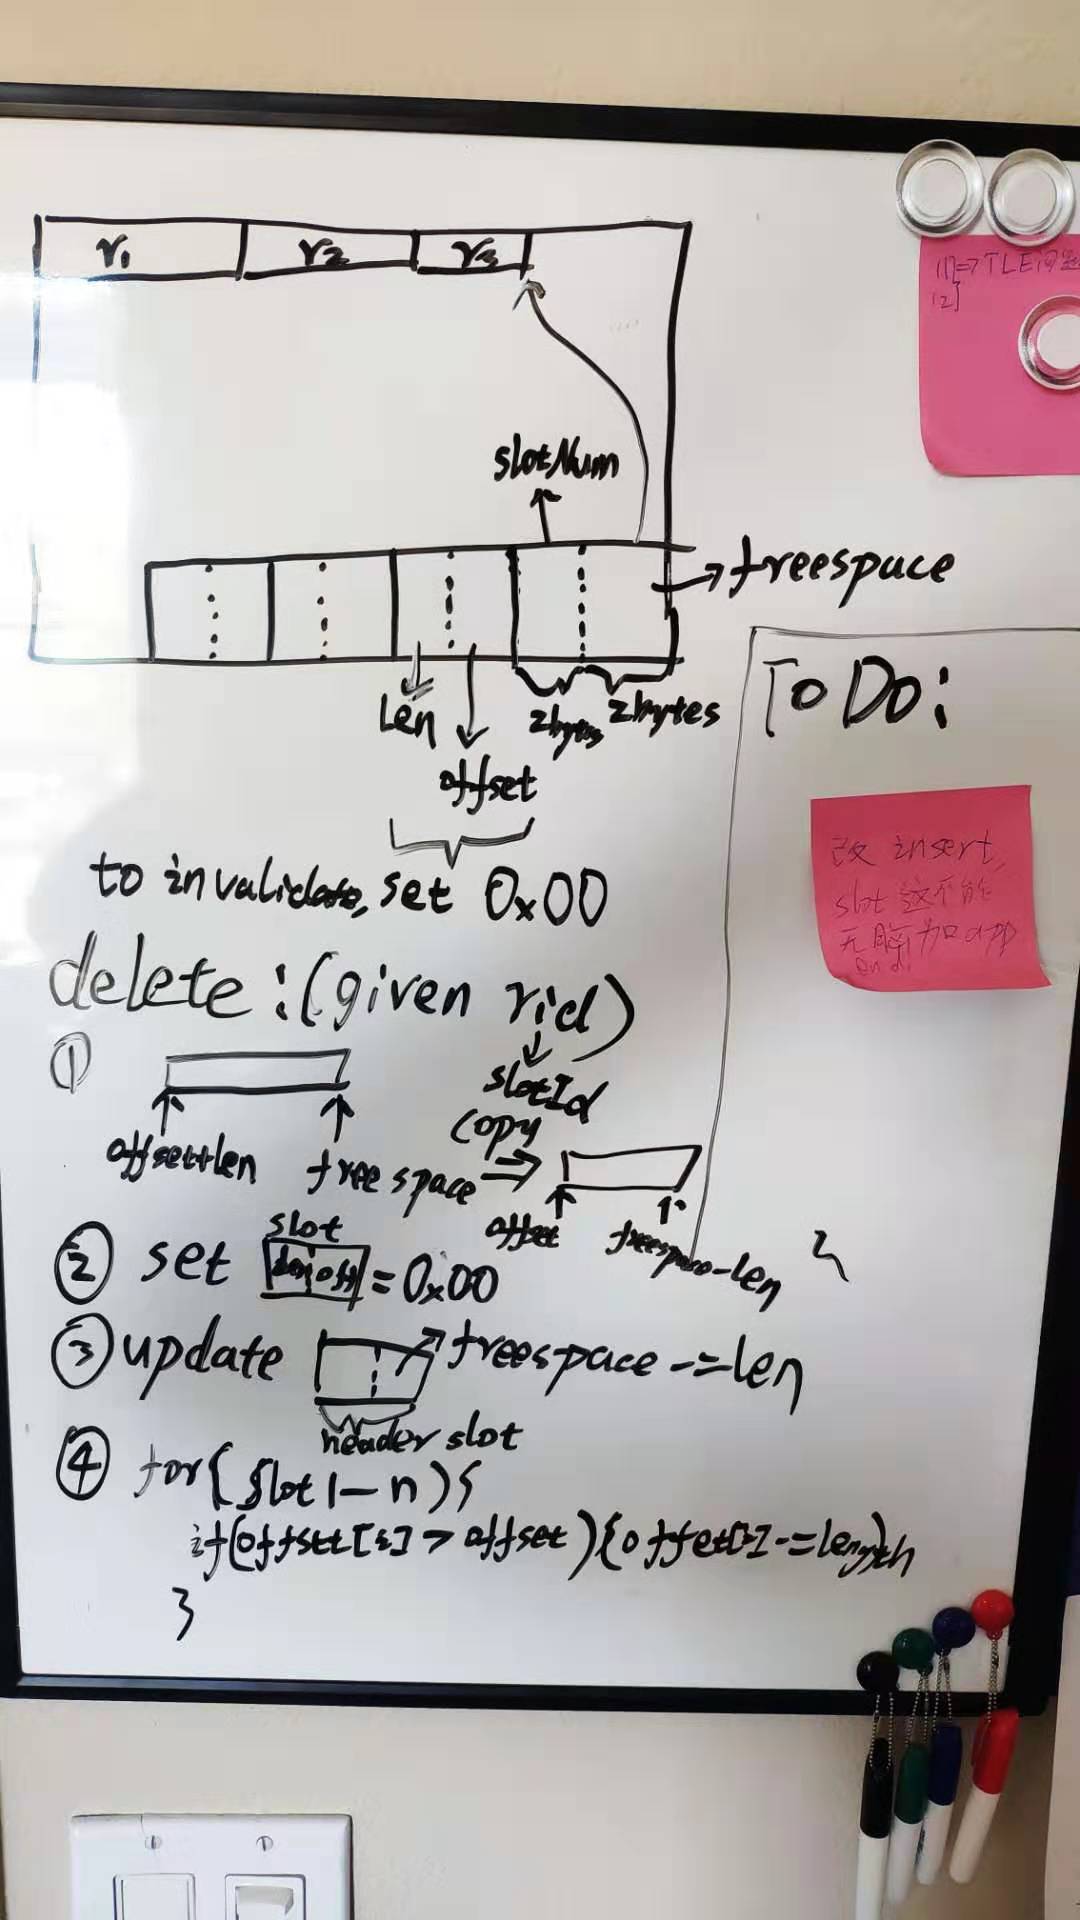 r1 r2 r3
slotNum
freespace
Len
offset
2bytes 2bytes
to invalidate, set 0x00
delete : (given rid)
slotId
①
offset+len
freespace
copy
⇒
offset
freespace-len
② set
slot
len off
= 0x00
③ update
freespace -= len
header slot
④ for(slot 1-n){
if(offset[i] > offset){offset[i]-=length
}
To Do:
改 insert,
slot 这不能
无脑加 app
end.
=> TLE问题